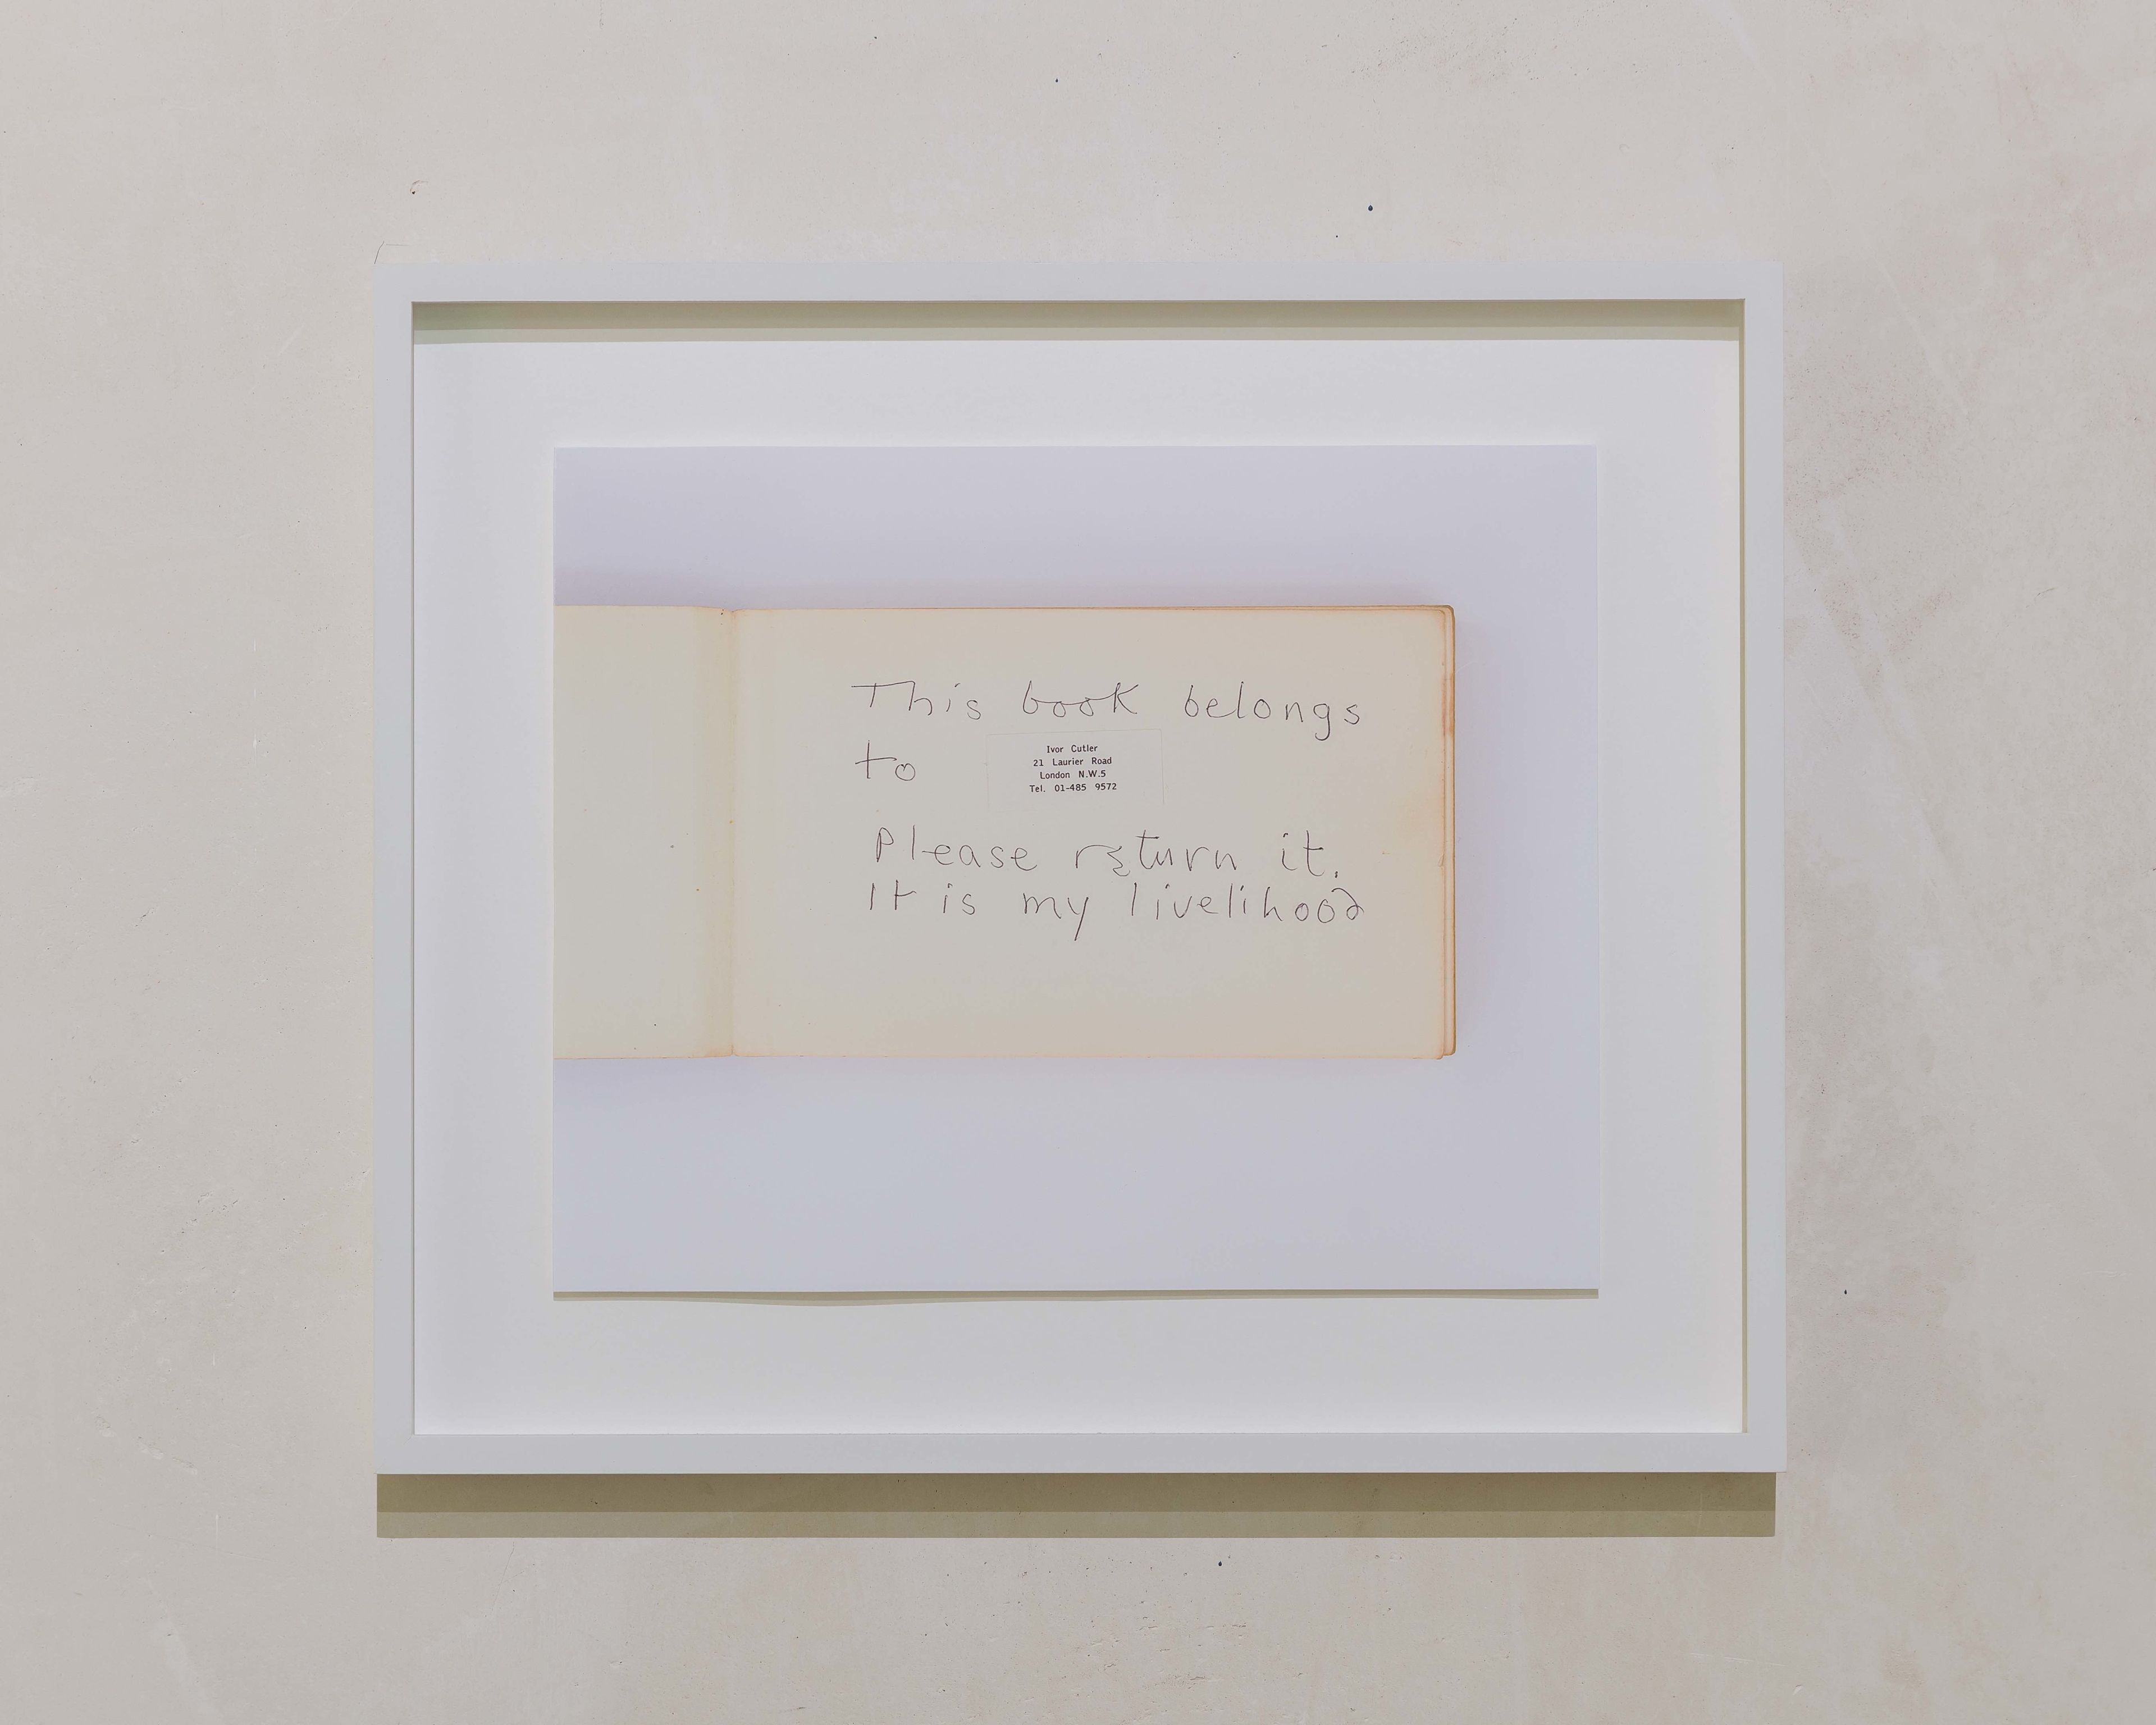 This book belongs
to
Ivor Cutler
21 Laurier Road
London N.W.5
Tel. 01-485 9572
Please return it.
It is my livelihood